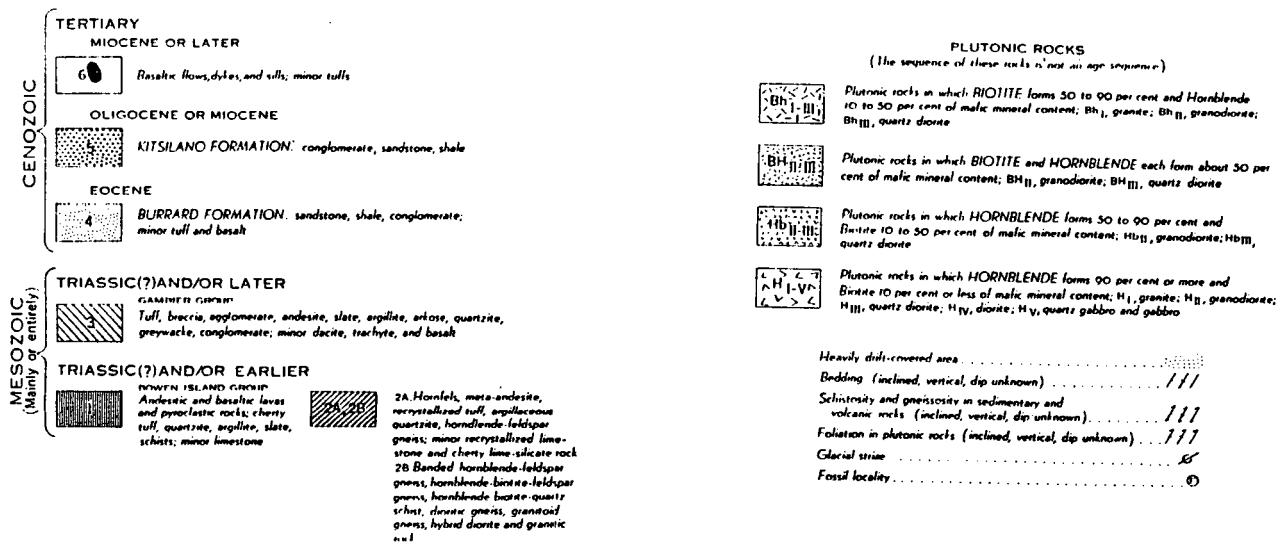 CENOZOIC
TERTIARY
MIOCENE OR LATER
6
Basaltic flows, dykes, and sills; minor tuffs
OLIGOCENE OR MIOCENE
5
KITSILANO FORMATION: conglomerate, sandstone, shale
EOCENE
4
BURRARD FORMATION. sandstone, shale, conglomerate;
minor tuff and basalt
MESOZOIC
(Mainly or entirely)
TRIASSIC(?) AND/OR LATER
GAMBIER GROUP
3
Tuff, breccia, agglomerate, andesite, slate, argillite, arkose, quartzite,
greywacke, conglomerate; minor dacite, trachyte, and basalt
TRIASSIC(?) AND/OR EARLIER
BOWEN ISLAND GROUP
1
Andesitic and basaltic lavas
and pyroclastic rocks; cherty
tuff, quartzite, argillite, slate,
schists; minor limestone
2A, 2B
2A. Hornfels, meta-andesite,
recrystallized tuff, argillaceous
quartzite, horndlende-feldspar
gneiss; minor recrystallized lime-
stone and cherty lime-silicate rock
2B Banded hornblende-feldspar
gneiss, hornblende-biotite-feldspar
gneiss, hornblende biotite-quartz
schist, dioritic gneiss, granitoid
gneiss, hybrid diorite and granitic
PLUTONIC ROCKS
(The sequence of these rocks is not an age sequence)
Bh I-III
Plutonic rocks in which BIOTITE forms 50 to 90 per cent and Hornblende
10 to 50 per cent of mafic mineral content; Bh I, granite; Bh II, granodiorite;
Bh III, quartz diorite
BH II-III
Plutonic rocks in which BIOTITE and HORNBLENDE each form about 50 per
cent of mafic mineral content; BH II, granodiorite; BH III, quartz diorite
Hb II-III
Plutonic rocks in which HORNBLENDE forms 50 to 90 per cent and
Biotite 10 to 50 per cent of mafic mineral content; Hb II, granodiorite; Hb III,
quartz diorite
H I-V
Plutonic rocks in which HORNBLENDE forms 90 per cent or more and
Biotite 10 per cent or less of mafic mineral content; H I, granite; H II, granodiorite;
H III, quartz diorite; H IV, diorite; H V, quartz gabbro and gabbro
Heavily drift-covered area
Bedding (inclined, vertical, dip unknown)
Schistosity and gneissosity in sedimentary and
volcanic rocks (inclined, vertical, dip unknown)
Foliation in plutonic rocks (inclined, vertical, dip unknown)
Glacial striae
Fossil locality